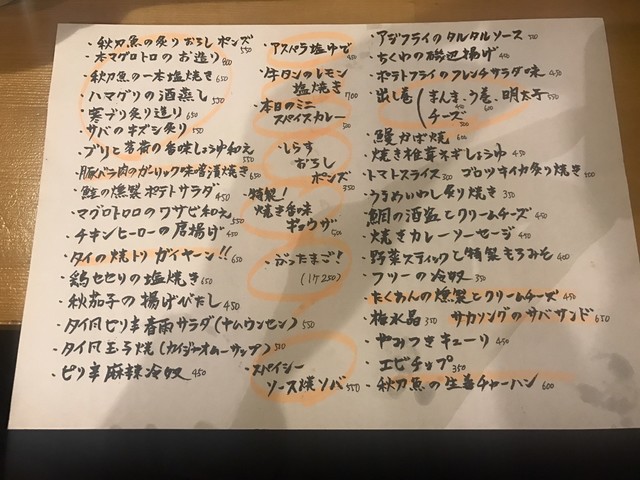 ・秋刀魚の炙りおろしポンズ 550
・本マグロトロのお造り 800
・秋刀魚の一本塩焼き 650
・ハマグリの酒蒸し 550
・寒ブリ炙り造り 650
・サバのキズシ炙り 550
・ブリと茗荷の香味しょうゆ和え 550
・豚バラ肉のガーリック味噌漬焼き 650
・鮭の燻製ポテトサラダ 450
・マグロトロロのワサビ和え 550
・チキンヒーローの唐揚げ 450
・タイの焼トリ ガイヤーン!! 650
・鶏セセリの塩焼き 650
・秋茄子の揚げびたし 450
・タイ風ピリ辛春雨サラダ(ヤムウンセン) 550
・タイ風玉子焼(カイジーオムーサップ) 550
・ピリ辛麻辣冷奴 450
・アスパラ塩ゆで 450
・牛タンのレモン
塩焼き 700
・本日のミニ
スパイスカレー 500
・しらす
おろし
ポンズ 350
・特製!
焼き香味
ギョウザ 500
・ぶったまご!
(1ケ250)
・スパイシー
ソース焼ソバ 550
・アジフライのタルタルソース 500
・ちくわの磯辺揚げ 400
・ポテトフライのフレンチサラダ味 450
・出し巻(まんま、う巻、明太子 550
チーズ
・鰻かば焼 600
・焼き椎茸ネギしょうゆ 450
・トマトスライス 300 ・ブロツキイカ炙り焼き 400
・うるめいわし炙り焼き 350
・鯛の酒盗とクリームチーズ 450
・焼きカレーソーセージ 450
・野菜スティックと特製もろみそ 400
・フツーの冷奴 350
・たくあんの燻製とクリームチーズ 450
・梅水晶 350 サカソングのサバサンド 650
・やみつきキューリ 450
・エビチップ 350
・秋刀魚の生姜チャーハン 600